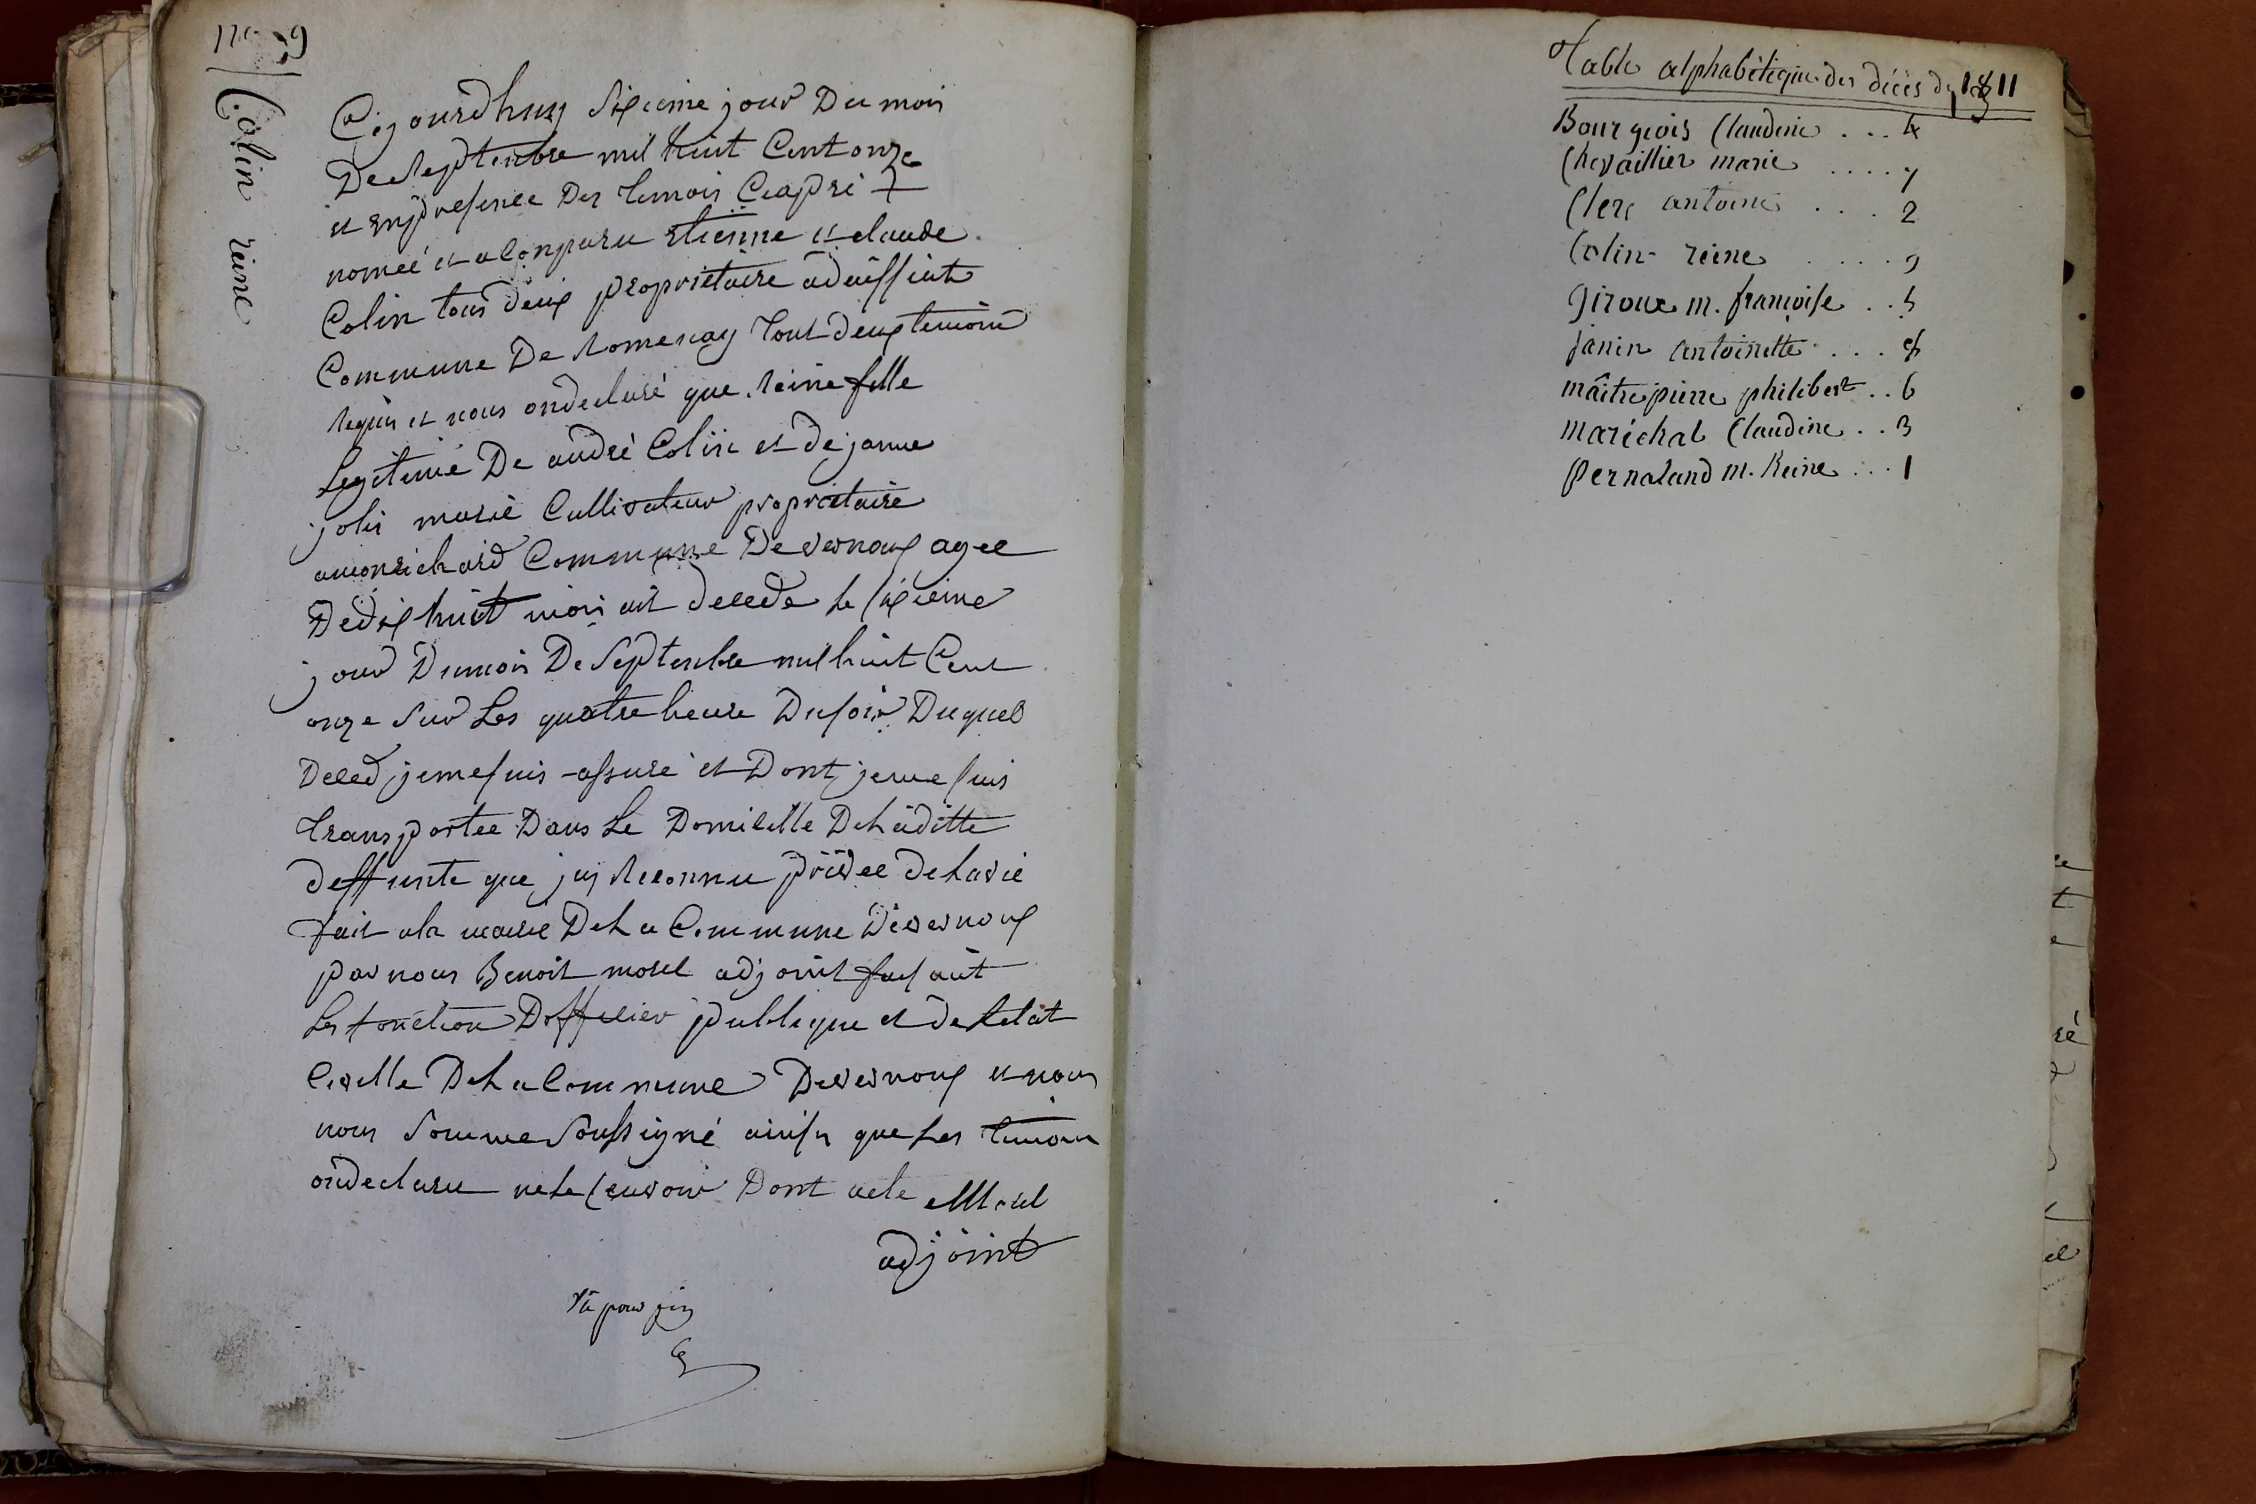 9
Colin reine
Cejourdhuy Sixieme jour Du mois
De Septembre mil huit Cent onze
et en presence Des temois Ciapré
nomeé et a Conparu etienne et claude
Colin tous deux propriétaire
Commune De Romenay tout deux temoin
requis et nous on declaré que reine fille
Legitime De andré Colin et de janne
marié Cultivateur propriétaire
a monrichard Commune De vernoux agee
De dix huit mois est decede le sixieme
jour Du mois De Septembre mil huit Cent
onze Sur Les quatre heure Du soir Duquel
Deced je me suis assuré et Dont je me suis
transportee Dans Le Domicille De la ditte
deffunte que jay reconnu privee de la vie
fait a la mairie De La Commune De vernoux
par nous Benoit morel adjoint faisant
Les fonction Dofficier publique et de letat
Civille De La Commune De vernoux et nous
nous Somme Soussigné ainsy que Les temoin
on declaru ne le savoir Dont acte Morel
adjoint
Vû pour fin
Table alphabétique des décès de 1811
Bourgeois Claudine . . . 4
Chevaillier marie . . . . 7
Clerc antoine . . . . 2
Colin reine . . . . 9
Giroux m. françoise . . 5
Janin antoinette . . . 8
maîtrepierre philibert . . 6
maréchal Claudine . . 3
Pernaland m. Reine . . . 1